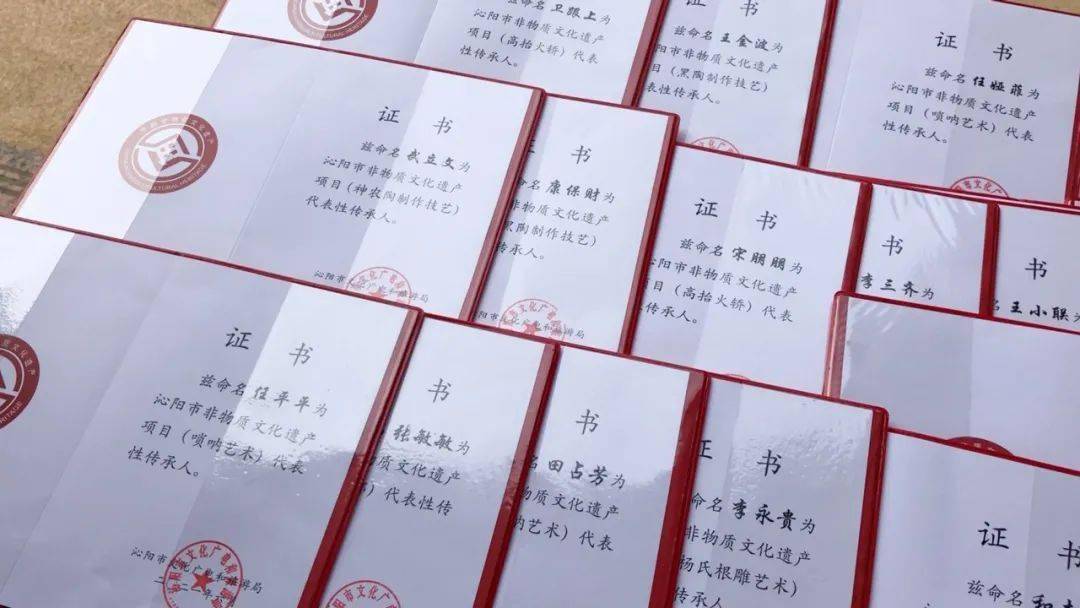 兹命名卫跟上为
沁阳市非物质文化遗产
项目（高抬火轿）代表
性传承人。
证书
兹命名王金波为
沁阳市非物质文化遗产
项目（黑陶制作技艺）
代表性传承人。
证书
兹命名任娅菲为
沁阳市非物质文化遗产
项目（唢呐艺术）代表
性传承人。
证书
兹命名武立文为
沁阳市非物质文化遗产
项目（神农陶制作技艺）
代表性传承人。
沁阳市文化广电和旅游局
书
命名康保财为
非物质文化遗产
黑陶制作技艺）
传承人。
沁阳市文化广电和旅游局
证书
兹命名宋朋朋为
沁阳市非物质文化遗产
项目（高抬火轿）代表
性传承人。
书
李三齐为
书
名王小联为
证书
兹命名任平平为
沁阳市非物质文化遗产
项目（唢呐艺术）代表
性传承人。
沁阳市文化广电和旅游局
书
张敏敏为
质文化遗产
）代表性传
书
名田占芳为
物质文化遗产
呐艺术）代表
证书
命名李永贵为
非物质文化遗产
杨氏根雕艺术）
代表性传承人。
证书
兹命名